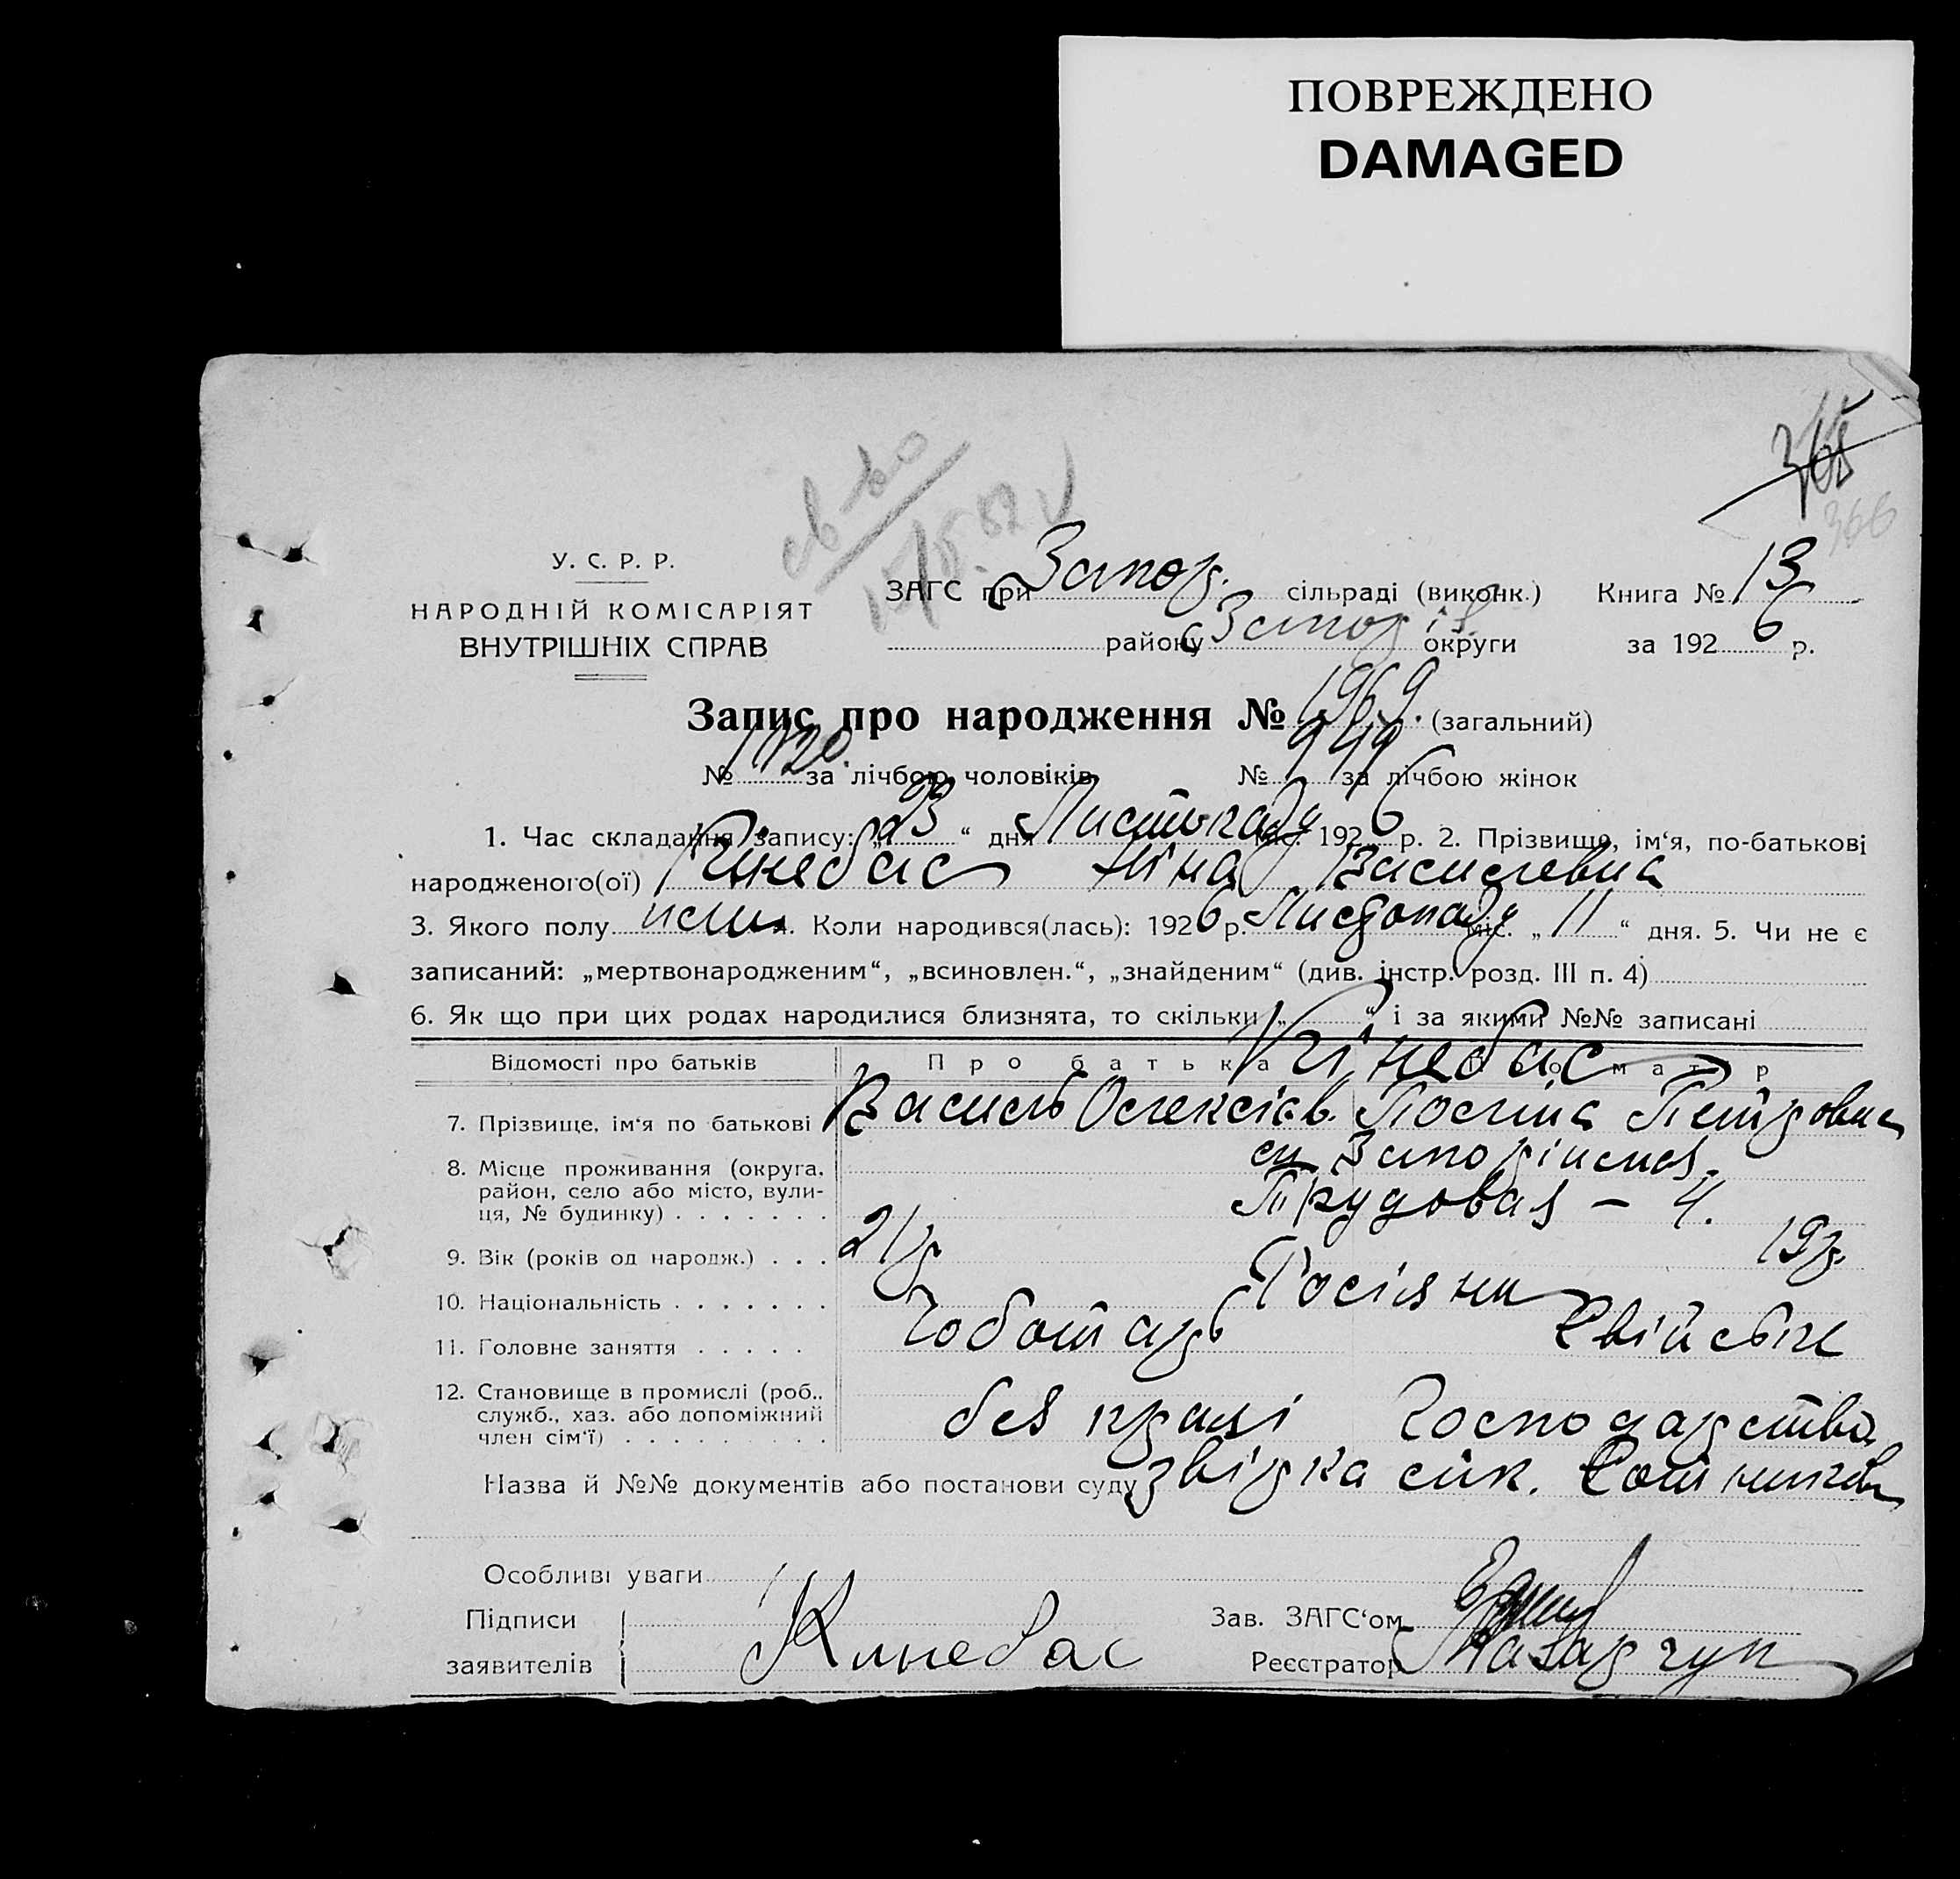 ПОВРЕЖДЕНО
DAMAGED
366
У. С. Р. Р.
НАРОДНІЙ КОМІСАРІЯТ
ВНУТРІШНІХ СПРАВ
ЗАГС при Запор. сільраді (виконк.) Книга № 13
району Запоріз округи за 1926 р.
Запис про народження № 1969. (загальний)
№ 1020. за лічбою чоловіків № 949 за лічбою жінок
1. Час складання запису: „23“ дня Листопаду міс. 1926 р. 2. Прізвище, ім‘я, по-батькові
народженого(ої) Кінебас Ніна Василевна
3. Якого полу жін. 4. Коли народився(лась): 1926 р. Листопаду міс. „11“ дня. 5. Чи не є
записаний: „мертвонародженим“, „всиновлен.“, „знайденим“ (див. інстр. розд. III п. 4)
6. Як що при цих родах народилися близнята, то скільки „ “ і за якими №№ записані
Відомості про батьків Про батька Про матір
Кінебас
7. Прізвище, ім‘я по батькові Василь Олексієв. Петровна
8. Місце проживання (округа, район, село або місто, вулиця, № будинку)
Трудовая – 4.
9. Вік (років од народж.) 21 р 19 р.
10. Національність Росіяни
11. Головне заняття Чоботарь Свійське
12. Становище в промислі (роб., служб., хаз. або допоміжний член сім‘ї) без праці господарства
Назва й №№ документів або постанови суду
Особливі уваги
Підписи
заявителів Кинебас
Зав. ЗАГС‘ом
Реєстратор Назарчук